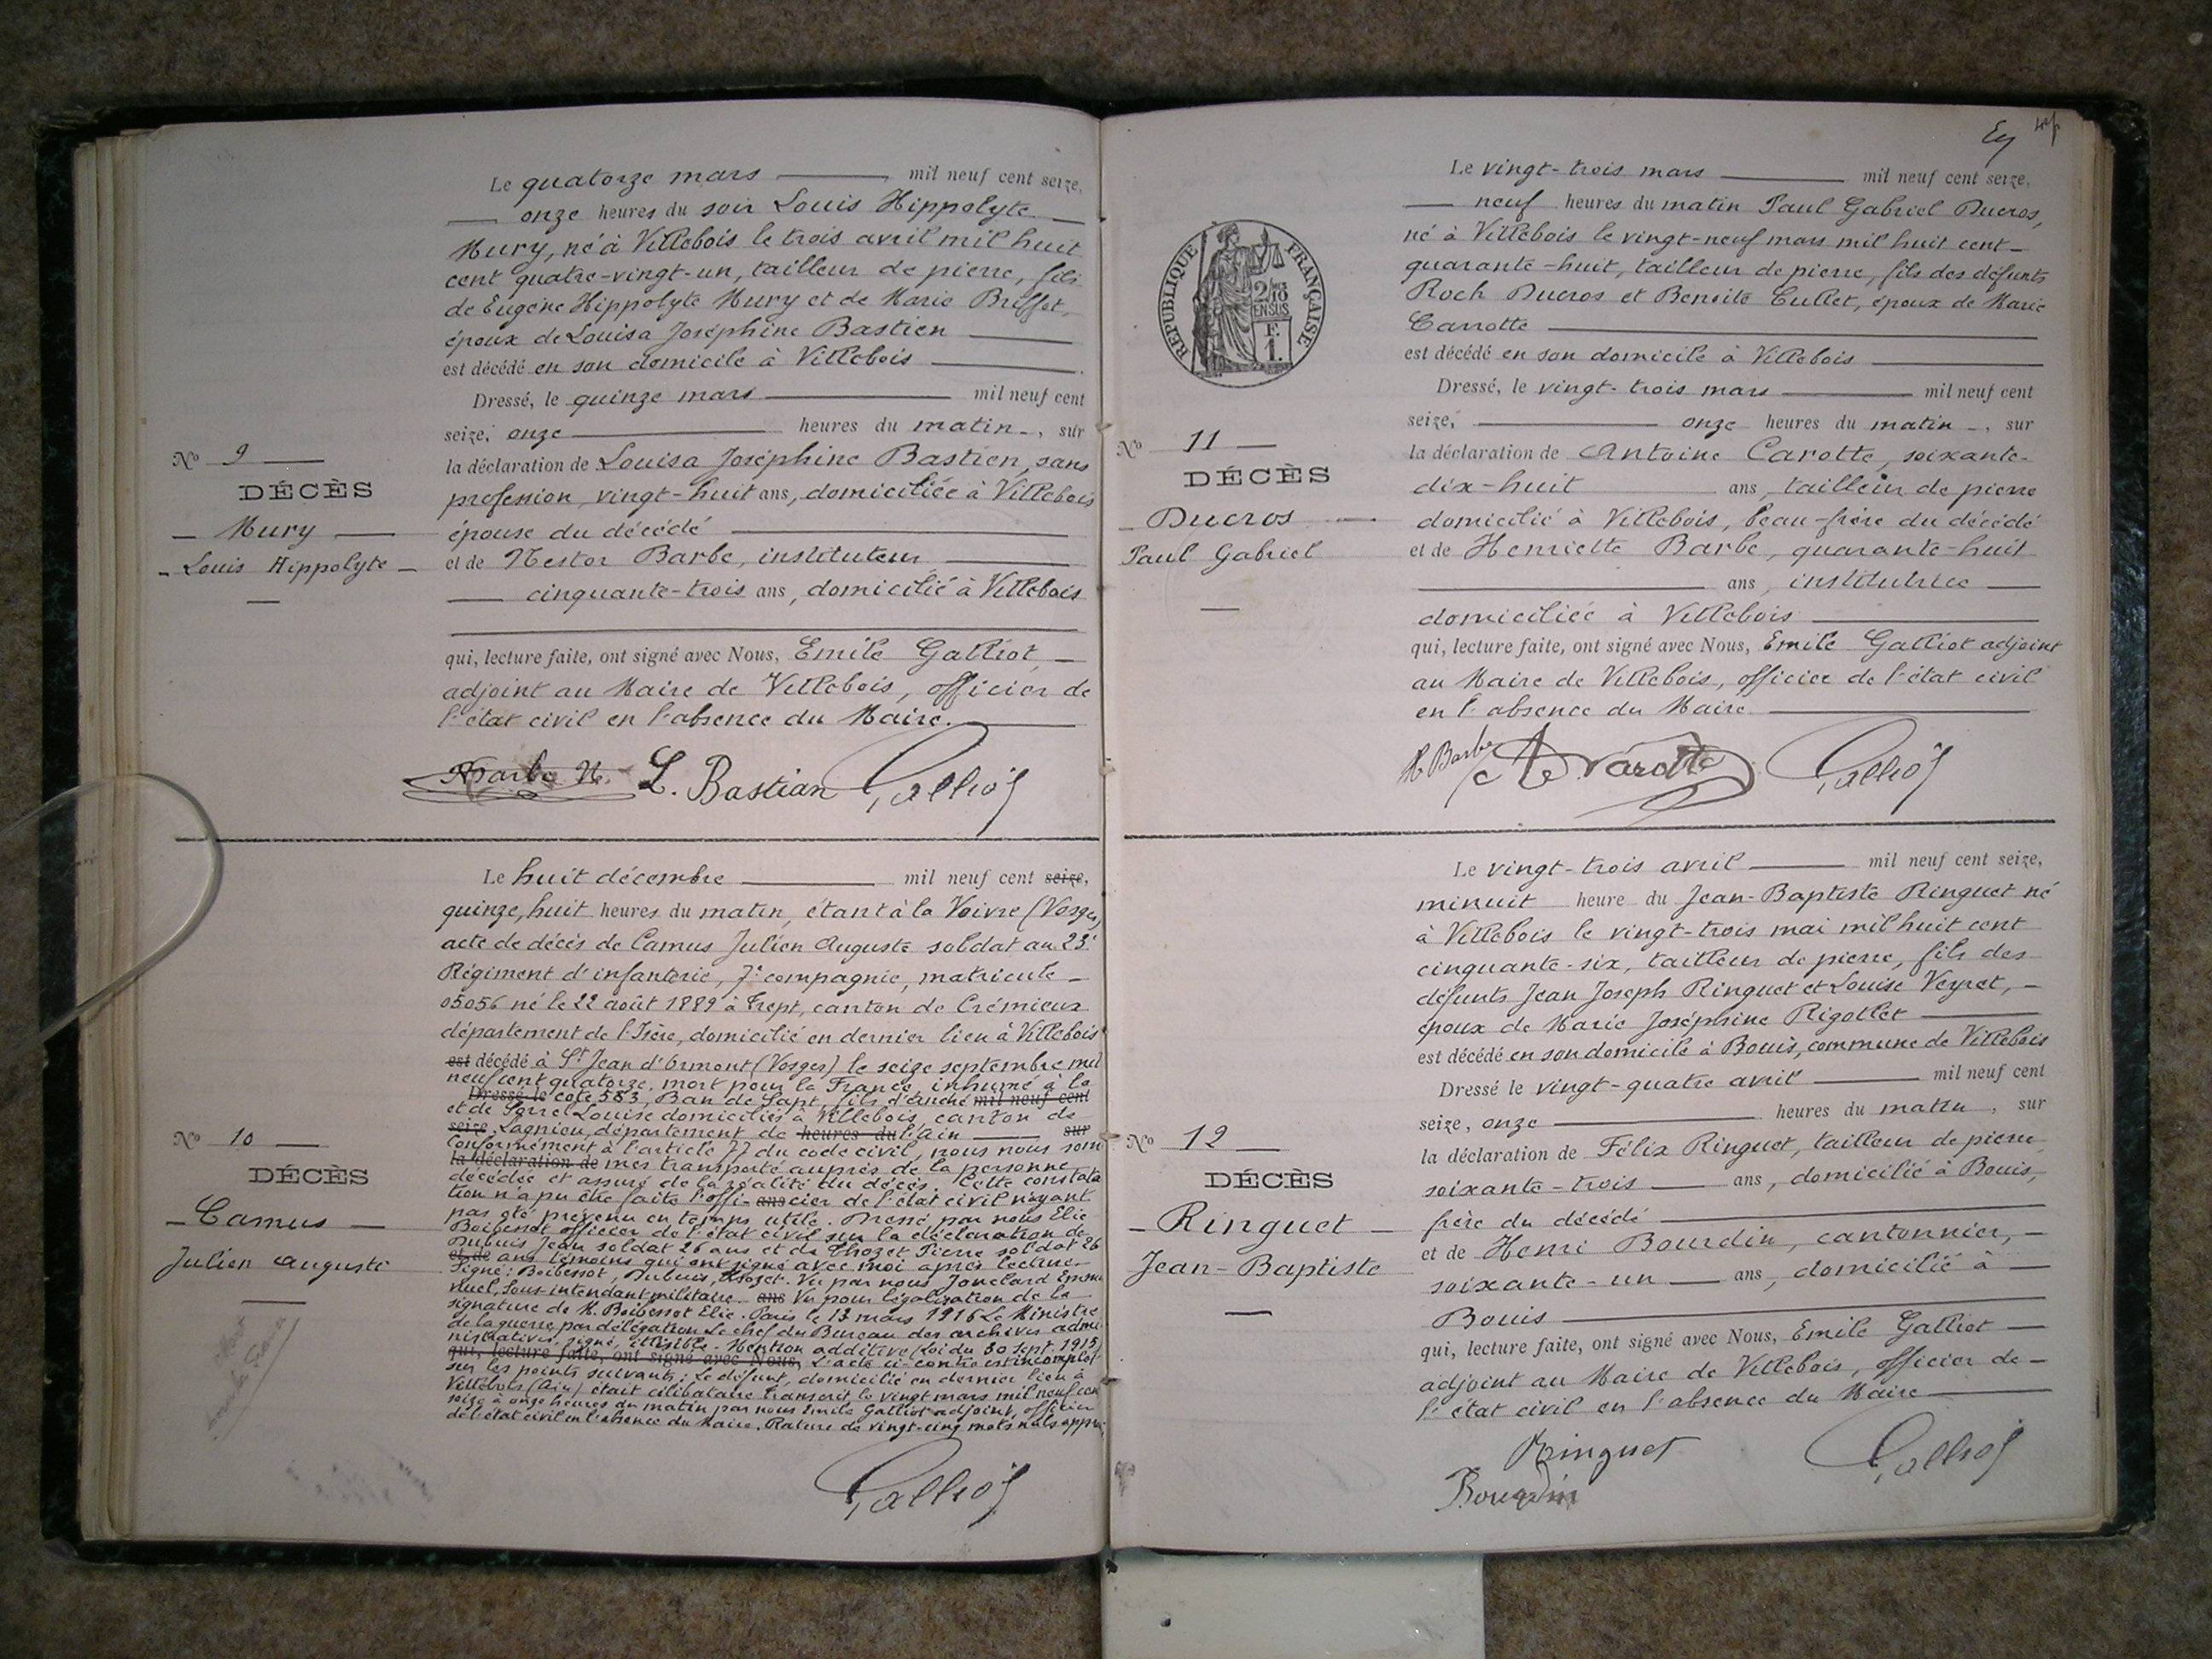 Le quatorze mars mil neuf cent seize,
onze heures du soir Louis Hippolyte
Mury, né à Villebois le trois avril mil huit
cent quatre-vingt-un, tailleur de pierre, fils
de Eugène Hippolyte Mury et de Marie Briffet,
époux de Louisa Joséphine Bastien
est décédé en son domicile à Villebois
Dressé, le quinze mars mil neuf cent
seize, onze heures du matin, sur
la déclaration de Louisa Joséphine Bastien, sans
profession, vingt-huit ans, domiciliée à Villebois
épouse du décédé
et de Nestor Barbe, instituteur
cinquante-trois ans, domicilié à Villebois
qui, lecture faite, ont signé avec Nous, Emile Galliot,
adjoint au Maire de Villebois, officier de
l'état civil en l'absence du Maire.
Barbe N. L. Bastian Galliot
No 9
DÉCÈS
Mury
Louis Hippolyte
Le huit décembre mil neuf cent seize,
quinze, huit heures du matin, étant à la Voivre (Vosges)
acte de décès de Camus Julien Auguste soldat au 23e
Régiment d'infanterie, 7e compagnie, matricule
05056 né le 22 août 1889 à Trept, canton de Crémieux
département de l'Isère, domicilié en dernier lieu à Villebois
est décédé à St Jean d'Ormont (Vosges) le seize septembre mil
neuf cent quatorze, mort pour la France, inhumé à la
Dressé le cote 583, Ban de Sapt, fils d'André mil neuf cent
et de Louise domiciliés à Villebois, canton de
seize Lagnieu, département de heures du l'Ain sur
Conformément à l'article 77 du code civil, nous nous som
la déclaration de mes transporté auprès de la personne
décédée et assuré de la réalité du décès. Cette constata
tion n'a pu être faite l'offi- ans cier de l'état civil n'ayant
pas été prévenu en temps utile. Dressé par nous Elie
Boibessot officier de l'état civil sur la déclaration de
Dubuis Jean soldat 26 ans et de Thozet Pierre soldat 26
et de ans témoins qui ont signé avec moi après lecture
Signé: Boibessot, Dubuis, Thozet. Vu par nous Jonclard Emma
nuel, Sous-intendant militaire. ans Vu pour légalisation de la
signature de M. Boibessot Elie. Paris le 13 mars 1916 Le Ministre
de la guerre par délégation Le chef du Bureau des archives admi
nistratives, signé, illisible. Mention additive (Loi du 30 sept. 1915)
qui, lecture faite, ont signé avec Nous, L'acte ci-contre est incomplet
sur les points suivants: Le défunt, domicilié en dernier lieu à
Villebois (Ain) était célibataire Transcrit le vingt mars mil neuf cen
seize à onze heures du matin par nous Emile Galliot adjoint, officier
de l'état civil en l'absence du Maire. Rature de vingt-cinq mots nuls appr
Galliot
No 10
DÉCÈS
Camus
Julien Auguste
Le vingt-trois mars mil neuf cent seize,
neuf heures du matin Paul Gabriel Ducros,
né à Villebois le vingt-neuf mars mil huit cent
quarante-huit, tailleur de pierre, fils des défunts
Roch Ducros et Benoite Cullet, époux de Marie
Carrotte
est décédé en son domicile à Villebois
Dressé, le vingt-trois mars mil neuf cent
seize, onze heures du matin, sur
la déclaration de Antoine Carotte, soixante-
dix-huit ans, tailleur de pierre
domicilié à Villebois, beau-frère du décédé
et de Henriette Barbe, quarante-huit
ans, institutrice
domiciliée à Villebois
qui, lecture faite, ont signé avec Nous, Emile Galliot adjoint
au Maire de Villebois, officier de l'état civil
en l'absence du Maire
H Barbe A Carotte Galliot
REPUBLIQUE FRANÇAISE
2/10 EN SUS
F. 1.
No 11
DÉCÈS
Ducros
Paul Gabriel
Le vingt-trois avril mil neuf cent seize,
minuit heure du Jean-Baptiste Ringuet né
à Villebois le vingt-trois mai mil huit cent
cinquante-six, tailleur de pierre, fils des
défunts Jean Joseph Ringuet et Louise Veyret,
époux de Marie Joséphine Rigollet
est décédé en son domicile à Bouis, commune de Villebois
Dressé le vingt-quatre avril mil neuf cent
seize, onze heures du matin, sur
la déclaration de Félix Ringuet, tailleur de pierre
soixante-trois ans, domicilié à Bouis,
frère du décédé
et de Henri Bourdin, cantonnier,
soixante-un ans, domicilié à
Bouis
qui, lecture faite, ont signé avec Nous, Emile Galliot
adjoint au Maire de Villebois, officier de
l'état civil en l'absence du Maire
Ringuet Galliot
Bourdin
No 12
DÉCÈS
Ringuet
Jean-Baptiste